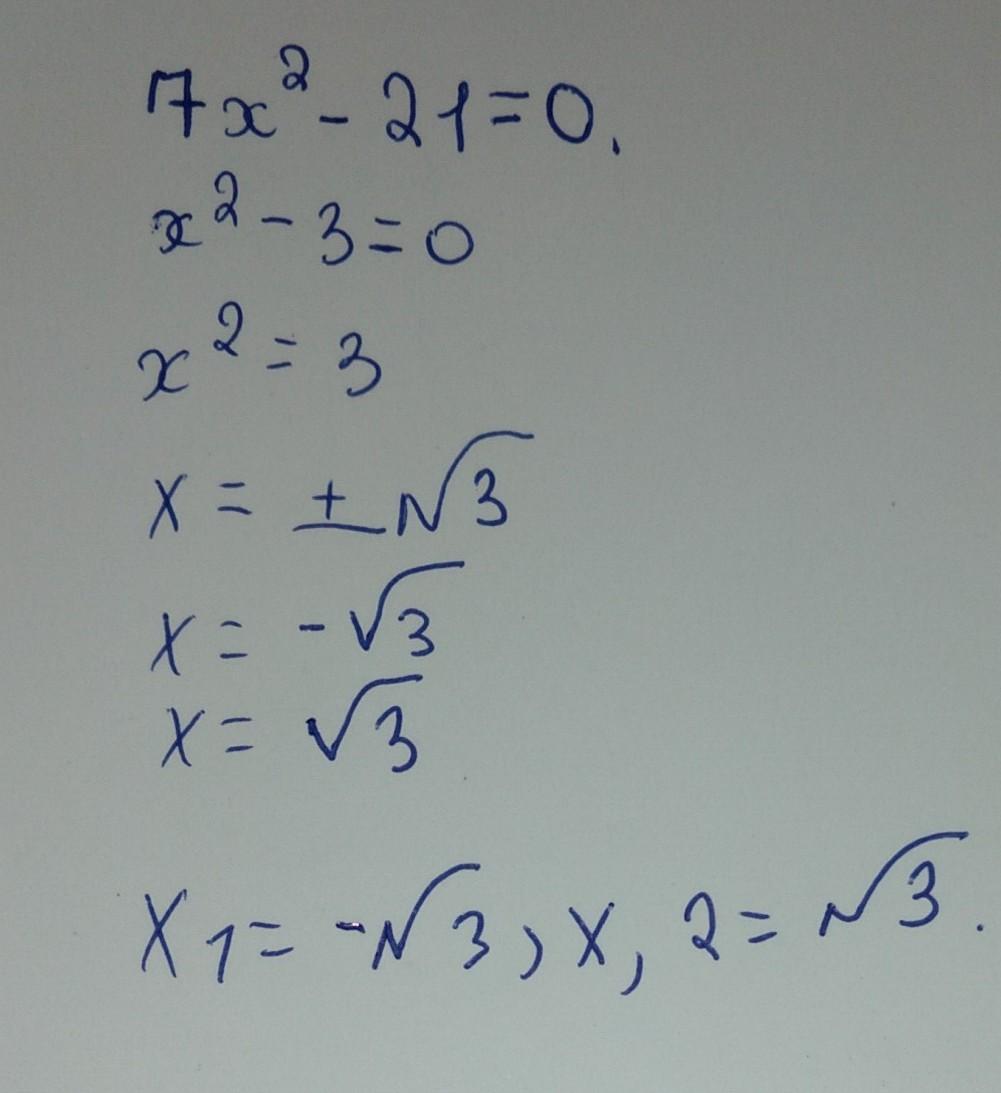 7x² - 21 = 0.
x² - 3 = 0
x² = 3
x = ± √3
x = - √3
x = √3
x 1 = - √3, x, 2 = √3.